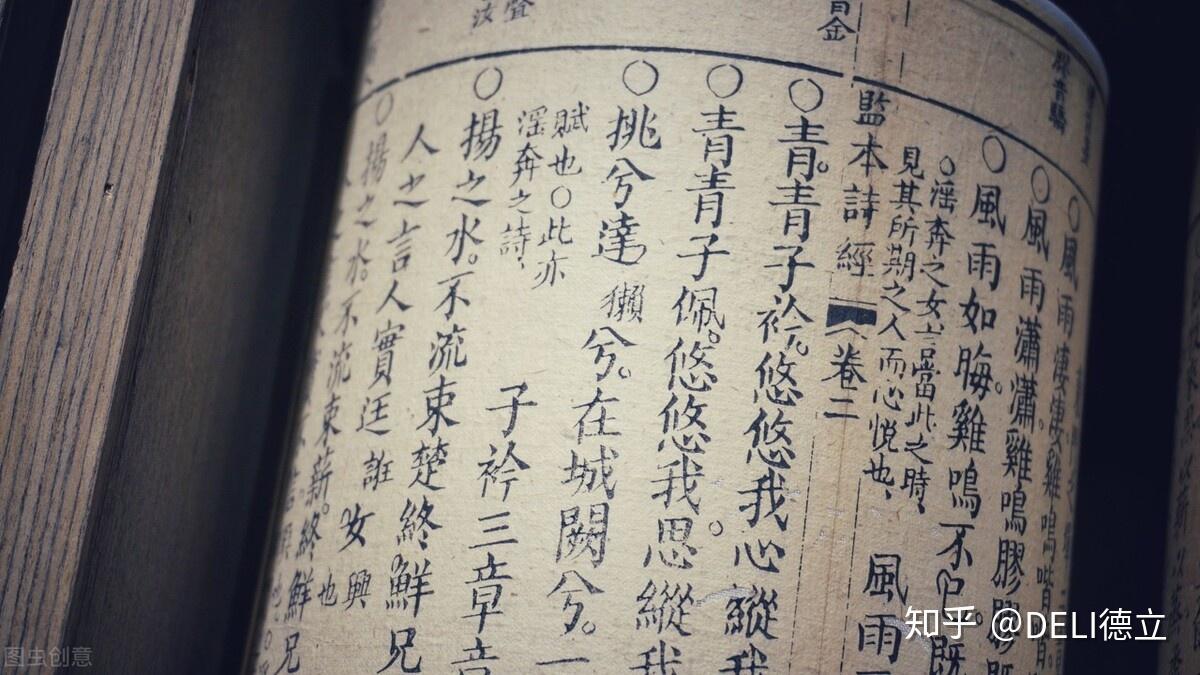 ○風雨淒淒雞鳴喈喈
○風雨瀟瀟。雞鳴膠膠
○風雨如晦。雞鳴不已既
○滛奔之女言當此之時、
見其所期之人而心悅也、
風雨三
監本詩經
卷二
○青。青子衿。悠悠我心縱我
○青青子佩。悠悠我思。縱我
○挑兮達 獺 兮。在城闕兮。一
賦也○此亦
滛奔之詩、
子衿三章章
○揚之水。不流束楚終鮮兄
人之言人實廷 誑 女 興也
○揚之水。不流束薪。終鮮兄
知乎 @DELI德立
图虫创意